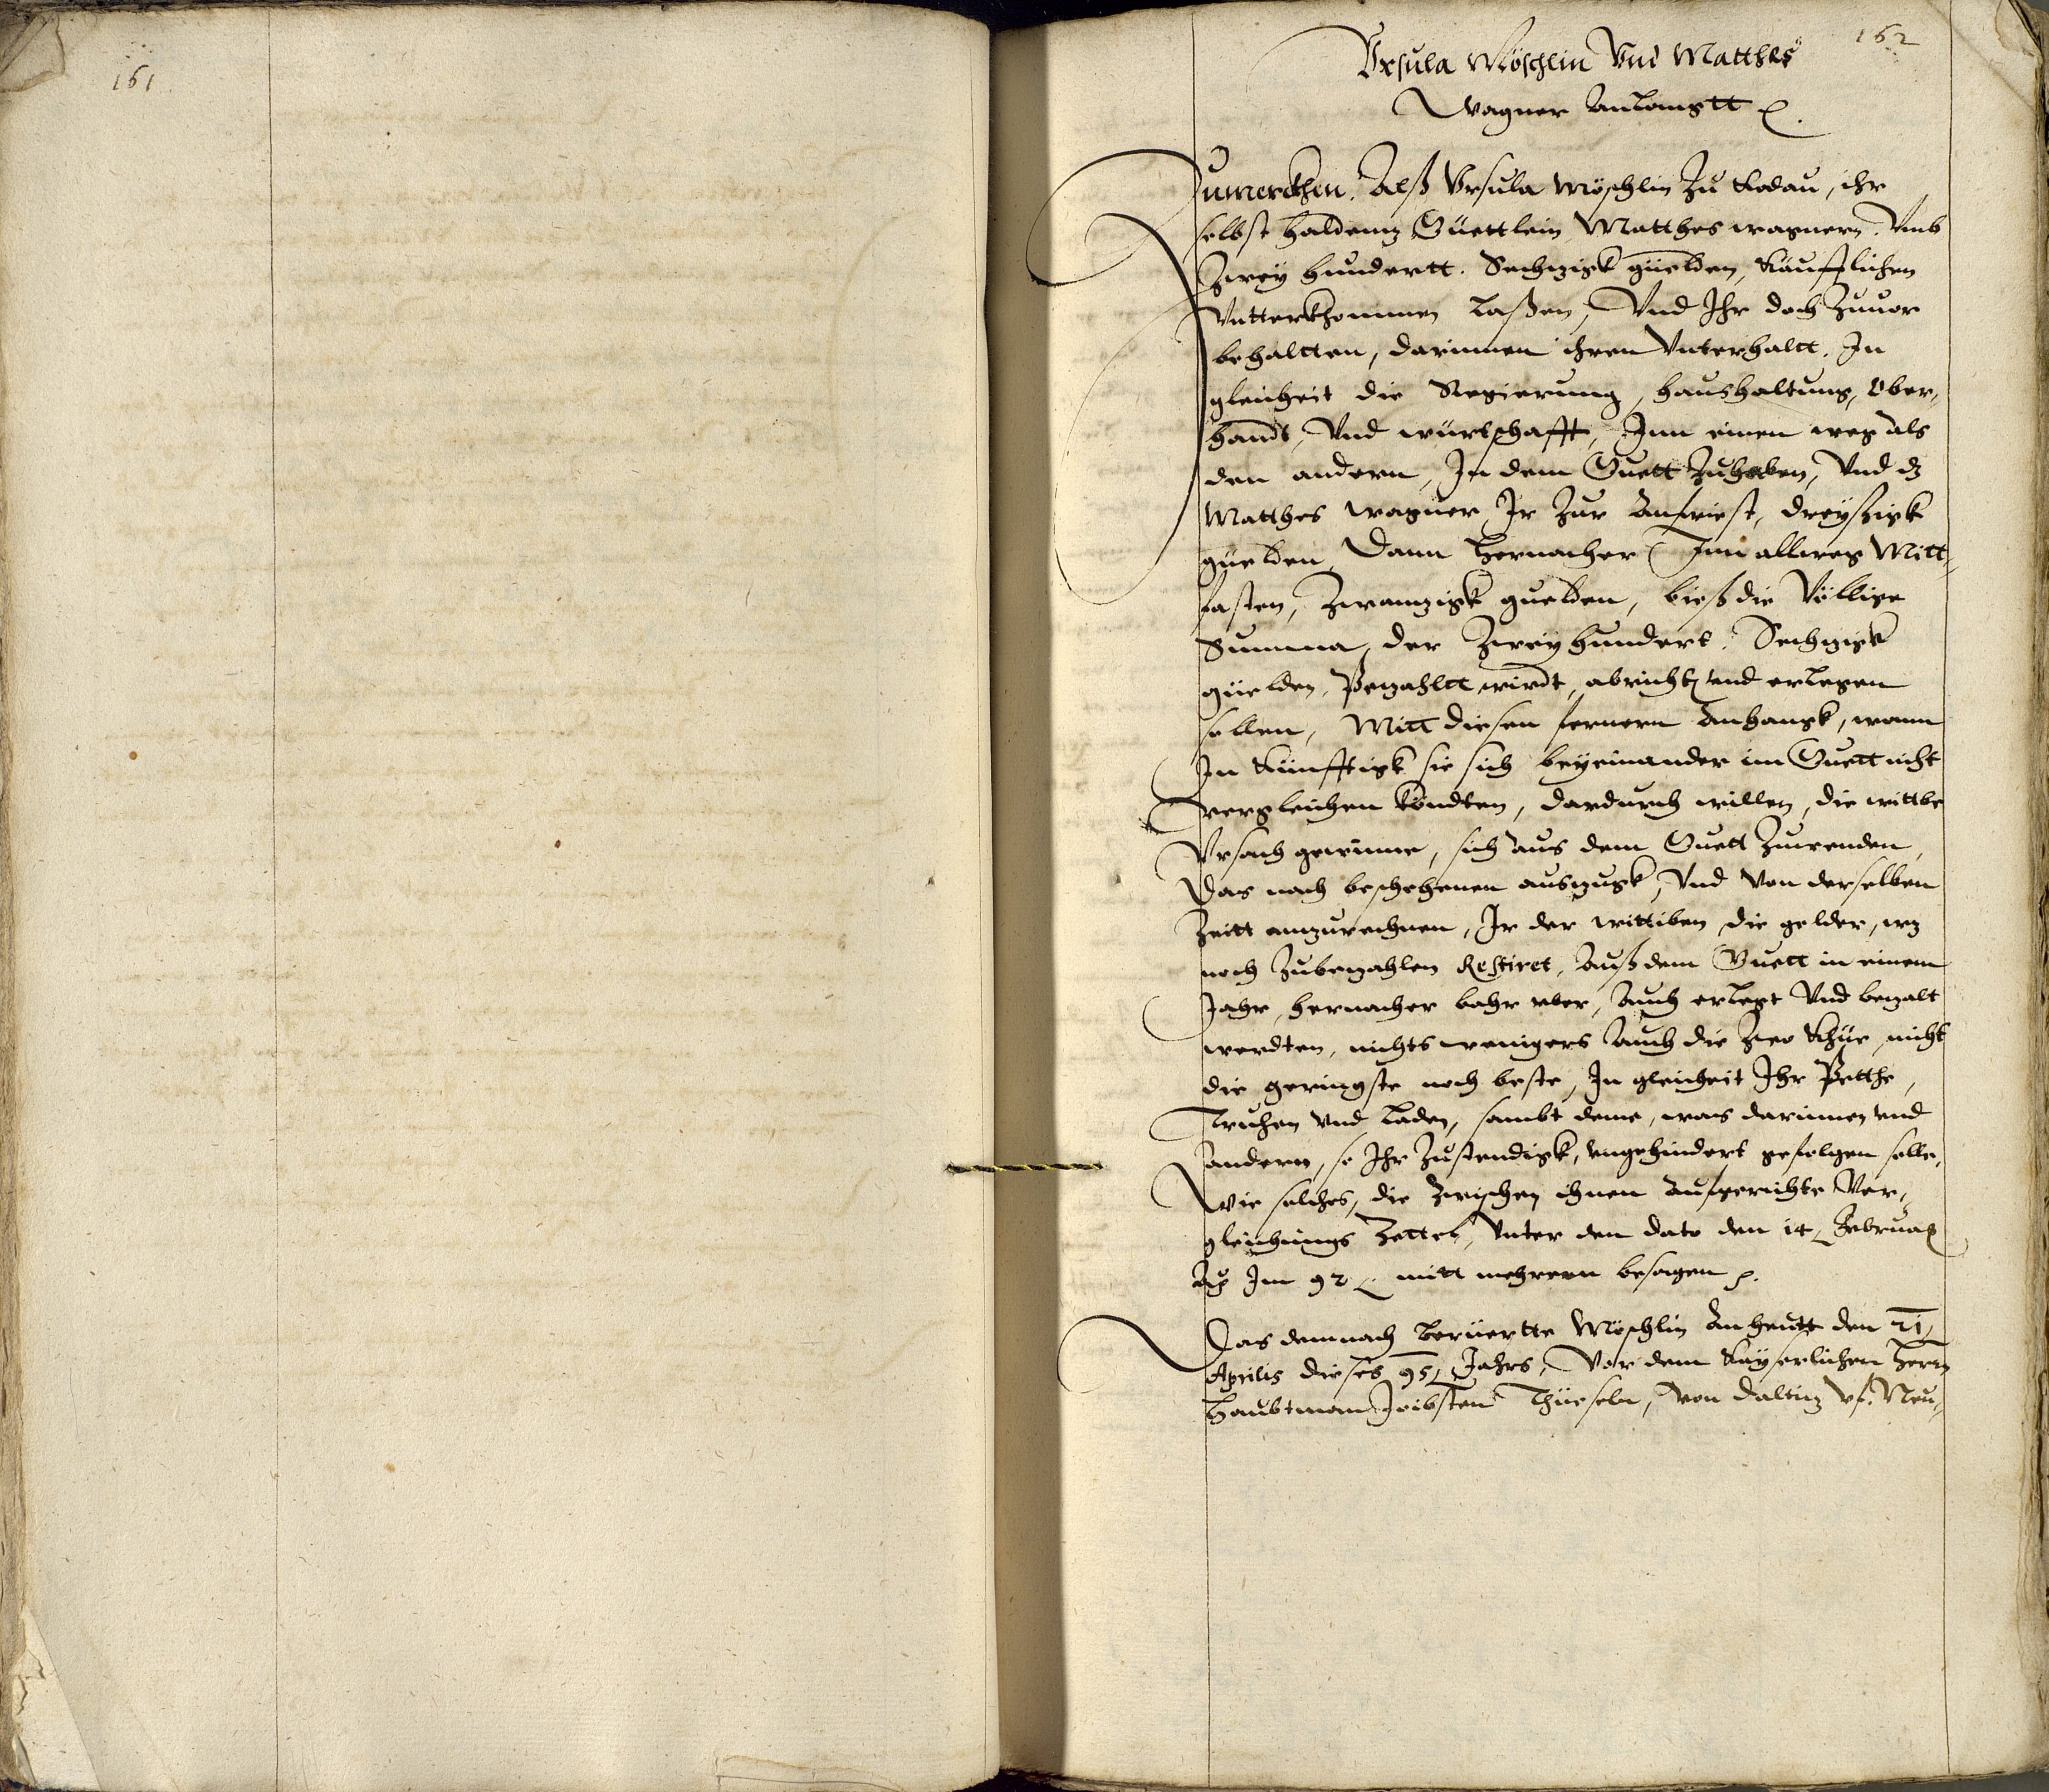 161
162
Vrsula Möschlin Vnd Matthes
Wagner Anlangtt
Zumerckhen. Alß Vrsula Möschlin Zu Rodau, ihr
selbst haldenz Güettlein Matthes wagnern. Vmb
Zwey hundertt. Sechzigk güelden, Käufflichen
Vntterkhommen laßen, Vnd Ihr doch Zuuor
behaltten, darinnen ihren Vnterhaltt. In
gleicheit die Regierung, haushaltung, Ober,
handt, Vnd würtschafft, Inn einen weg als
den andern, In dem Guett Zuhaben, Vnd dz
Matthes wagner Ir Zur Anfriest, dreyßigk
güelden, Dann hernacher Inn allweg Mitt,
fasten, Zwanzigk guelden, bieß die Völlige
Summa, der Zwey hundert. Sechzigk
güelden, Bezahltt wirdt, abricht vnd erlegen
sollen, Mitt diesen fernern Anhangk, wann
In Künfftigk sie sich beyeinander im Guett nicht
vergleichen köndten, dardurch willen, die wittbe
Vrsach gewinne, sich aus dem Guett Zuwenden,
Das nach beschehenen auszugk, Vnd Von derselben
Zeitt anzurechnen, Ir der wittiben die gelder, wz
noch Zubezahlen Restiret, Auß dem Guett in einem
Jahr, hernacher bahr vber, Auch erlegt Vnd bezalt
werdten, nichts wenigers Auch die Zwo Khüe, nicht
die geringste noch beste, In gleicheit Ihr Betthe,
Truhen vnd Laden, sambt deme, was darinnen vnd
andern, so Ihr Zustendigk, vngehindert gefolgen solle,
Wie solches, die Zwischen ihnen Aufgerichte Ver,
gleichungs Zettel, Vnter den dato den 14 Februarij
Im 92 mitt mehrern besagen
Das demnach berüertte Möschlin An heutt den 21
Aprilis dieses 95 Jahrs, Vor dem Kayserlichen Herrn
Haubtman Jobsten Thüeseln, Von Daltiz vf. Neu,